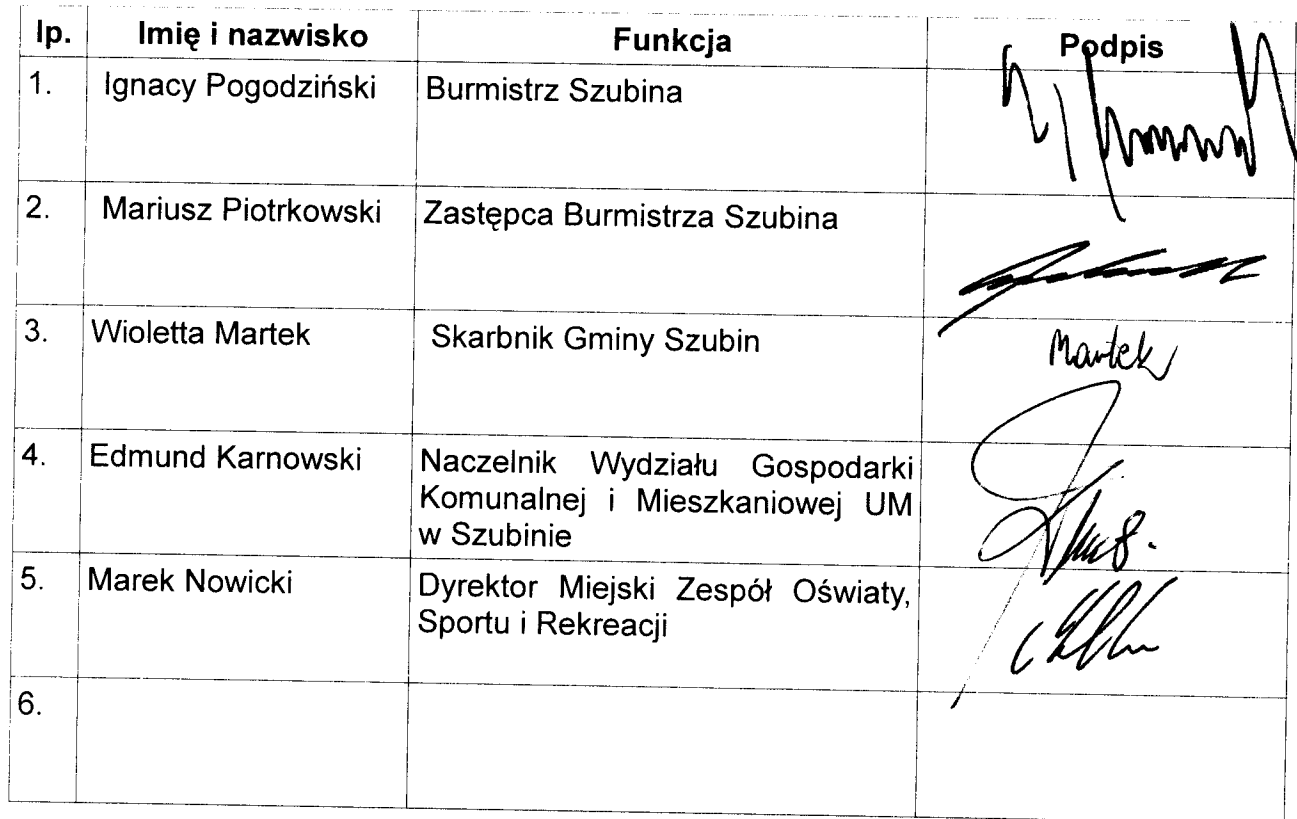 lp. Imię i nazwisko Funkcja Podpis
1. Ignacy Pogodziński Burmistrz Szubina
2. Mariusz Piotrkowski Zastępca Burmistrza Szubina
3. Wioletta Martek Skarbnik Gminy Szubin Martek
4. Edmund Karnowski Naczelnik Wydziału Gospodarki
Komunalnej i Mieszkaniowej UM
w Szubinie
5. Marek Nowicki Dyrektor Miejski Zespół Oświaty,
Sportu i Rekreacji
6.